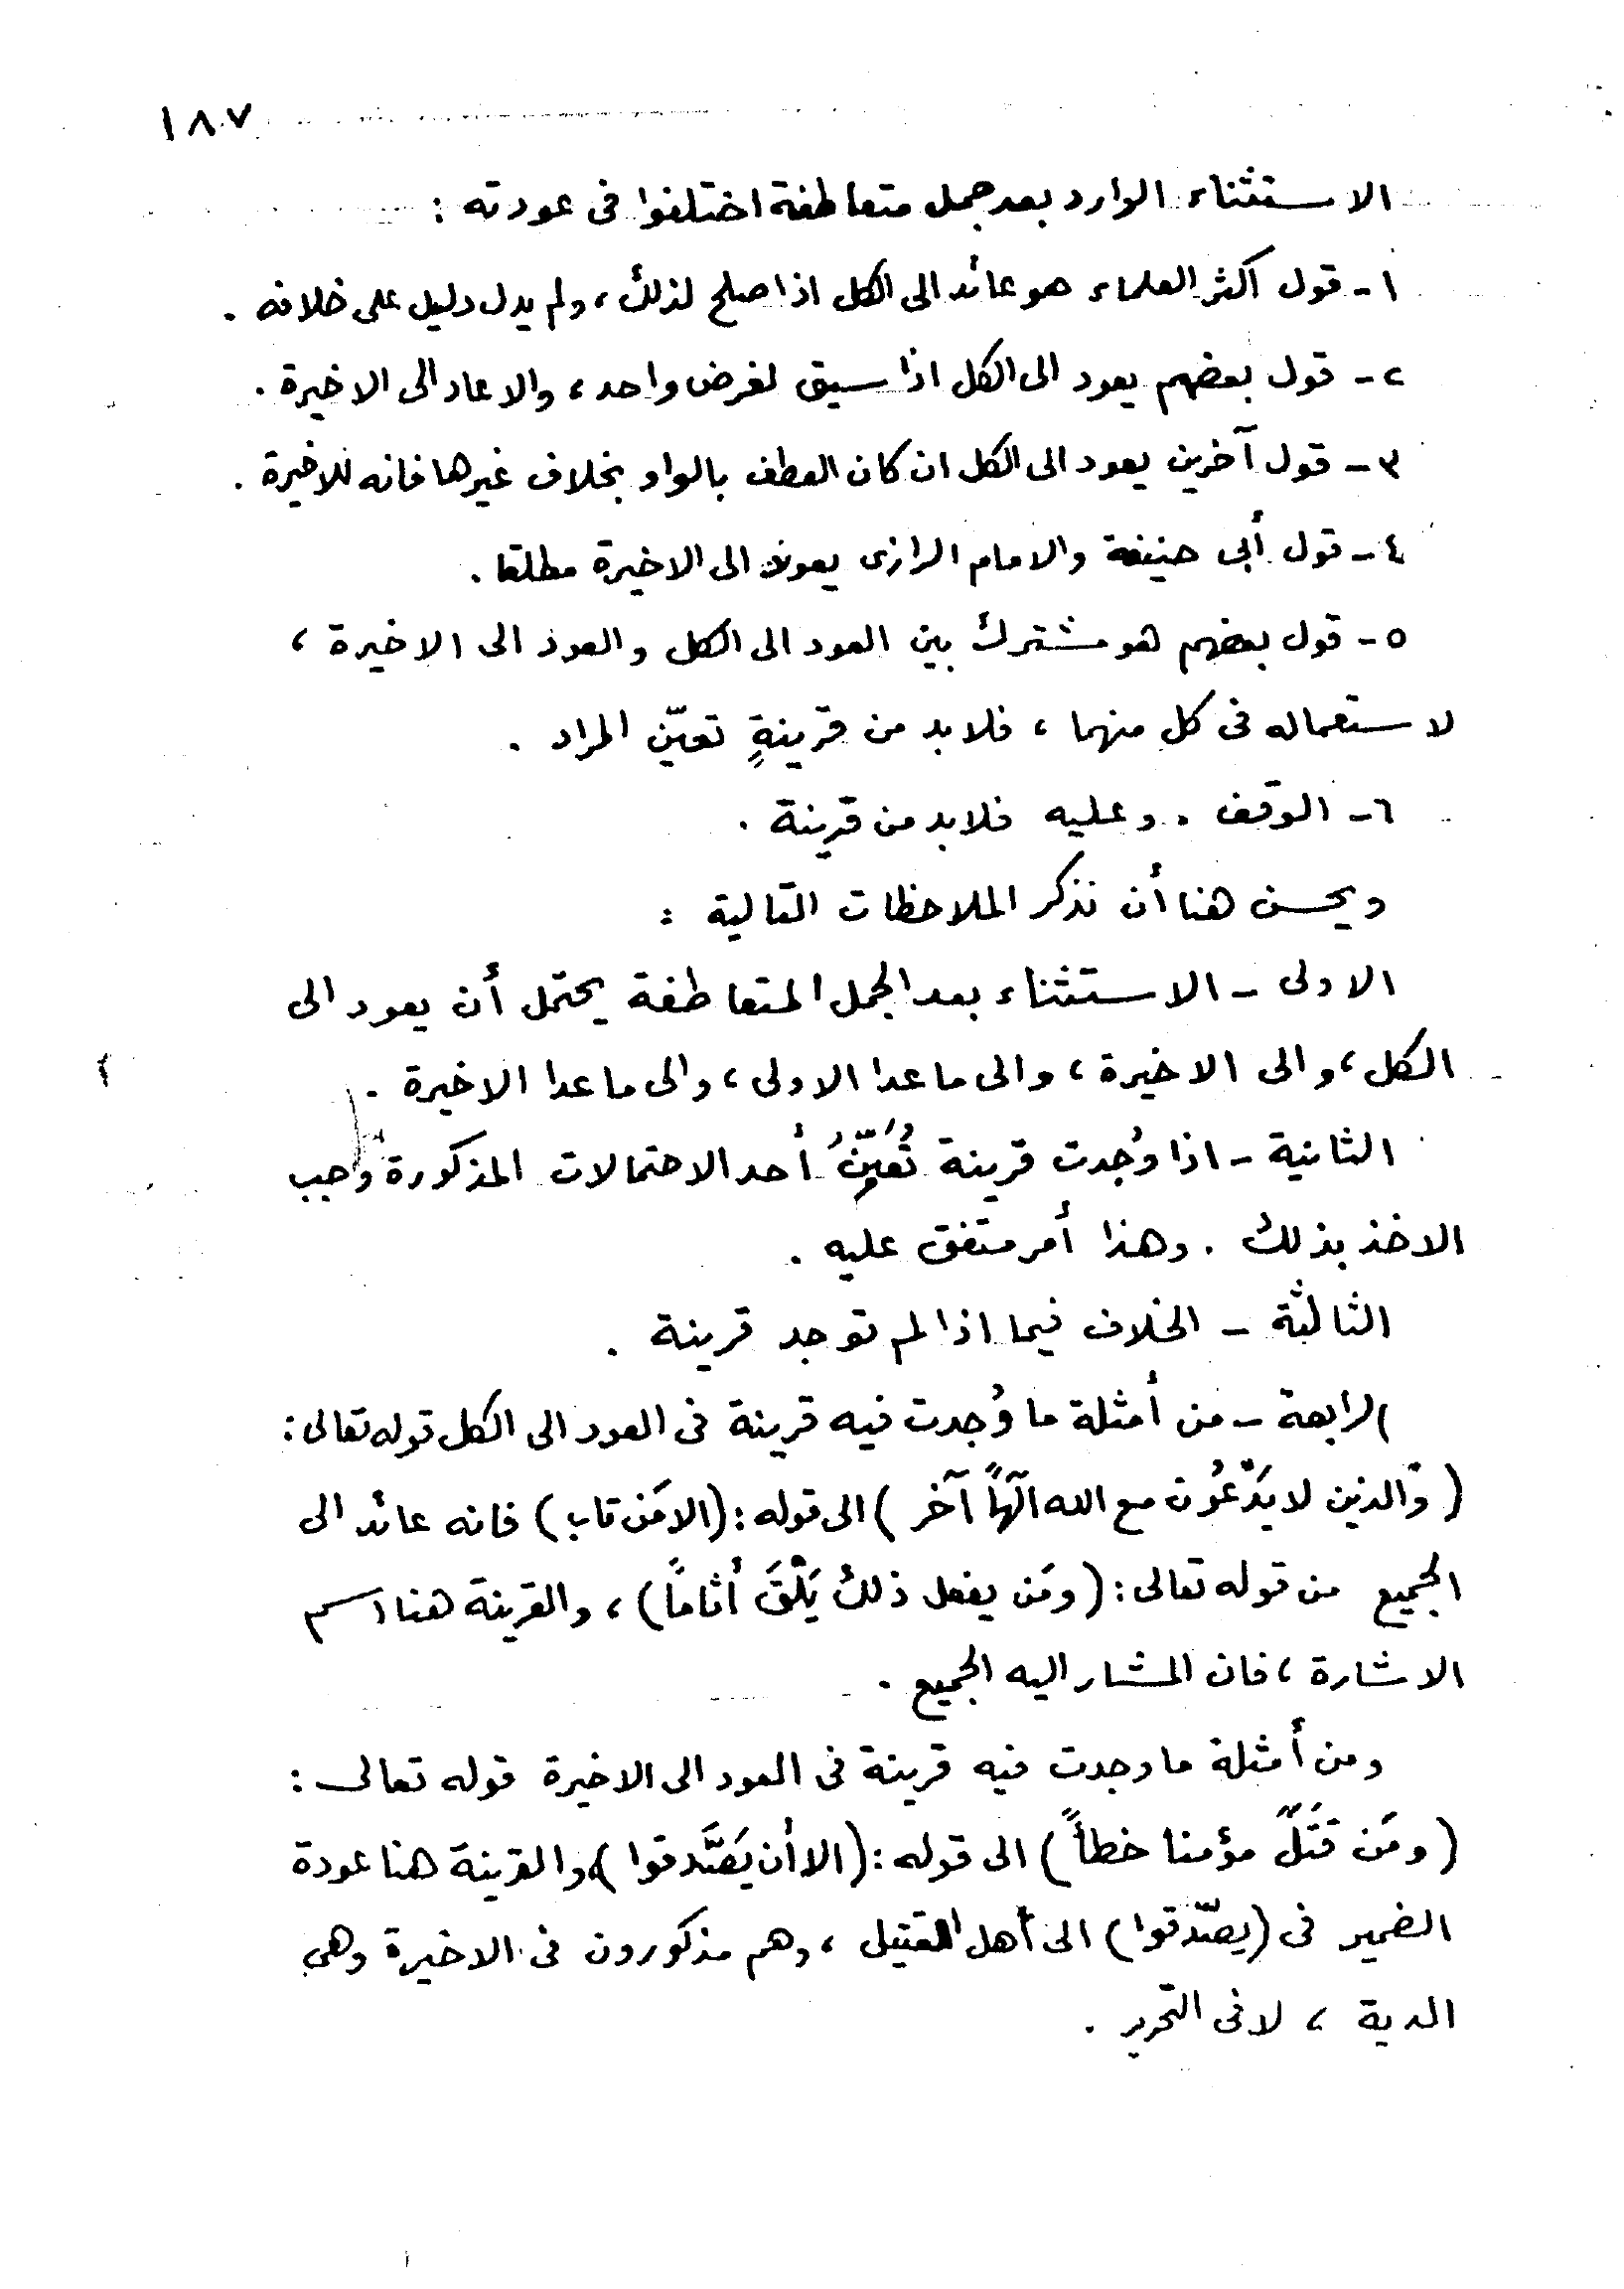 ١٨٧
الاستثناء الوارد بعد جمل متعاطفة اختلفوا فى عودته :
١- قول أكثر العلماء هو عائد الى الكل اذا صلح لذلك ، ولم يدل دليل على خلافه .
٢- قول بعضهم يعود الى الكل اذا سيق لغرض واحد ، والا عاد الى الاخيرة .
٣- قول آخرين يعود الى الكل ان كان العطف بالواو بخلاف غيرها فانه للاخيرة .
٤- قول أبى حنيفة والامام الرازى يعود الى الاخيرة مطلقا .
٥- قول بعضهم هو مشترك بين العود الى الكل والعود الى الاخيرة ،
لاستعماله فى كل منهما ، فلا بد من قرينةٍ تعيّن المراد .
٦- الوقف . وعليه فلا بد من قرينة .
ويحسن هنا أن نذكر الملاحظات التالية :
الاولى - الاستثناء بعد الجمل المتعاطفة يحتمل أن يعود الى
الكل ، والى الاخيرة ، والى ما عدا الاولى ، والى ما عدا الاخيرة .
الثانية - اذا وُجدت قرينة تُعَيّنُ أحد الاحتمالات المذكورة وجب
الاخذ بذلك . وهذا أمر متفق عليه .
الثالثة - الخلاف فيما اذا لم توجد قرينة .
الرابعة - من أمثلة ما وُجدت فيه قرينة فى العود الى الكل قوله تعالى :
( والذين لا يَدْعُون مع الله الٓهاً آخر ) الى قوله : ( الا مَن تاب ) فانه عائد الى
الجميع من قوله تعالى : ( ومَن يفعل ذلك يَلْقَ أثاماً ) ، والقرينة هنا اسم
الاشارة ، فان المشار اليه الجميع .
ومن أمثلة ما وجدت فيه قرينة فى العود الى الاخيرة قوله تعالى :
( ومَن قَتَلَ مؤمنا خطأً ) الى قوله : ( الا أن يَصَّدقوا ) ، والقرينة هنا عودة
الضمير فى ( يصّدقوا ) الى أهل القتيل ، وهم مذكورون فى الاخيرة وهى
الدية ، لا فى التحرير .